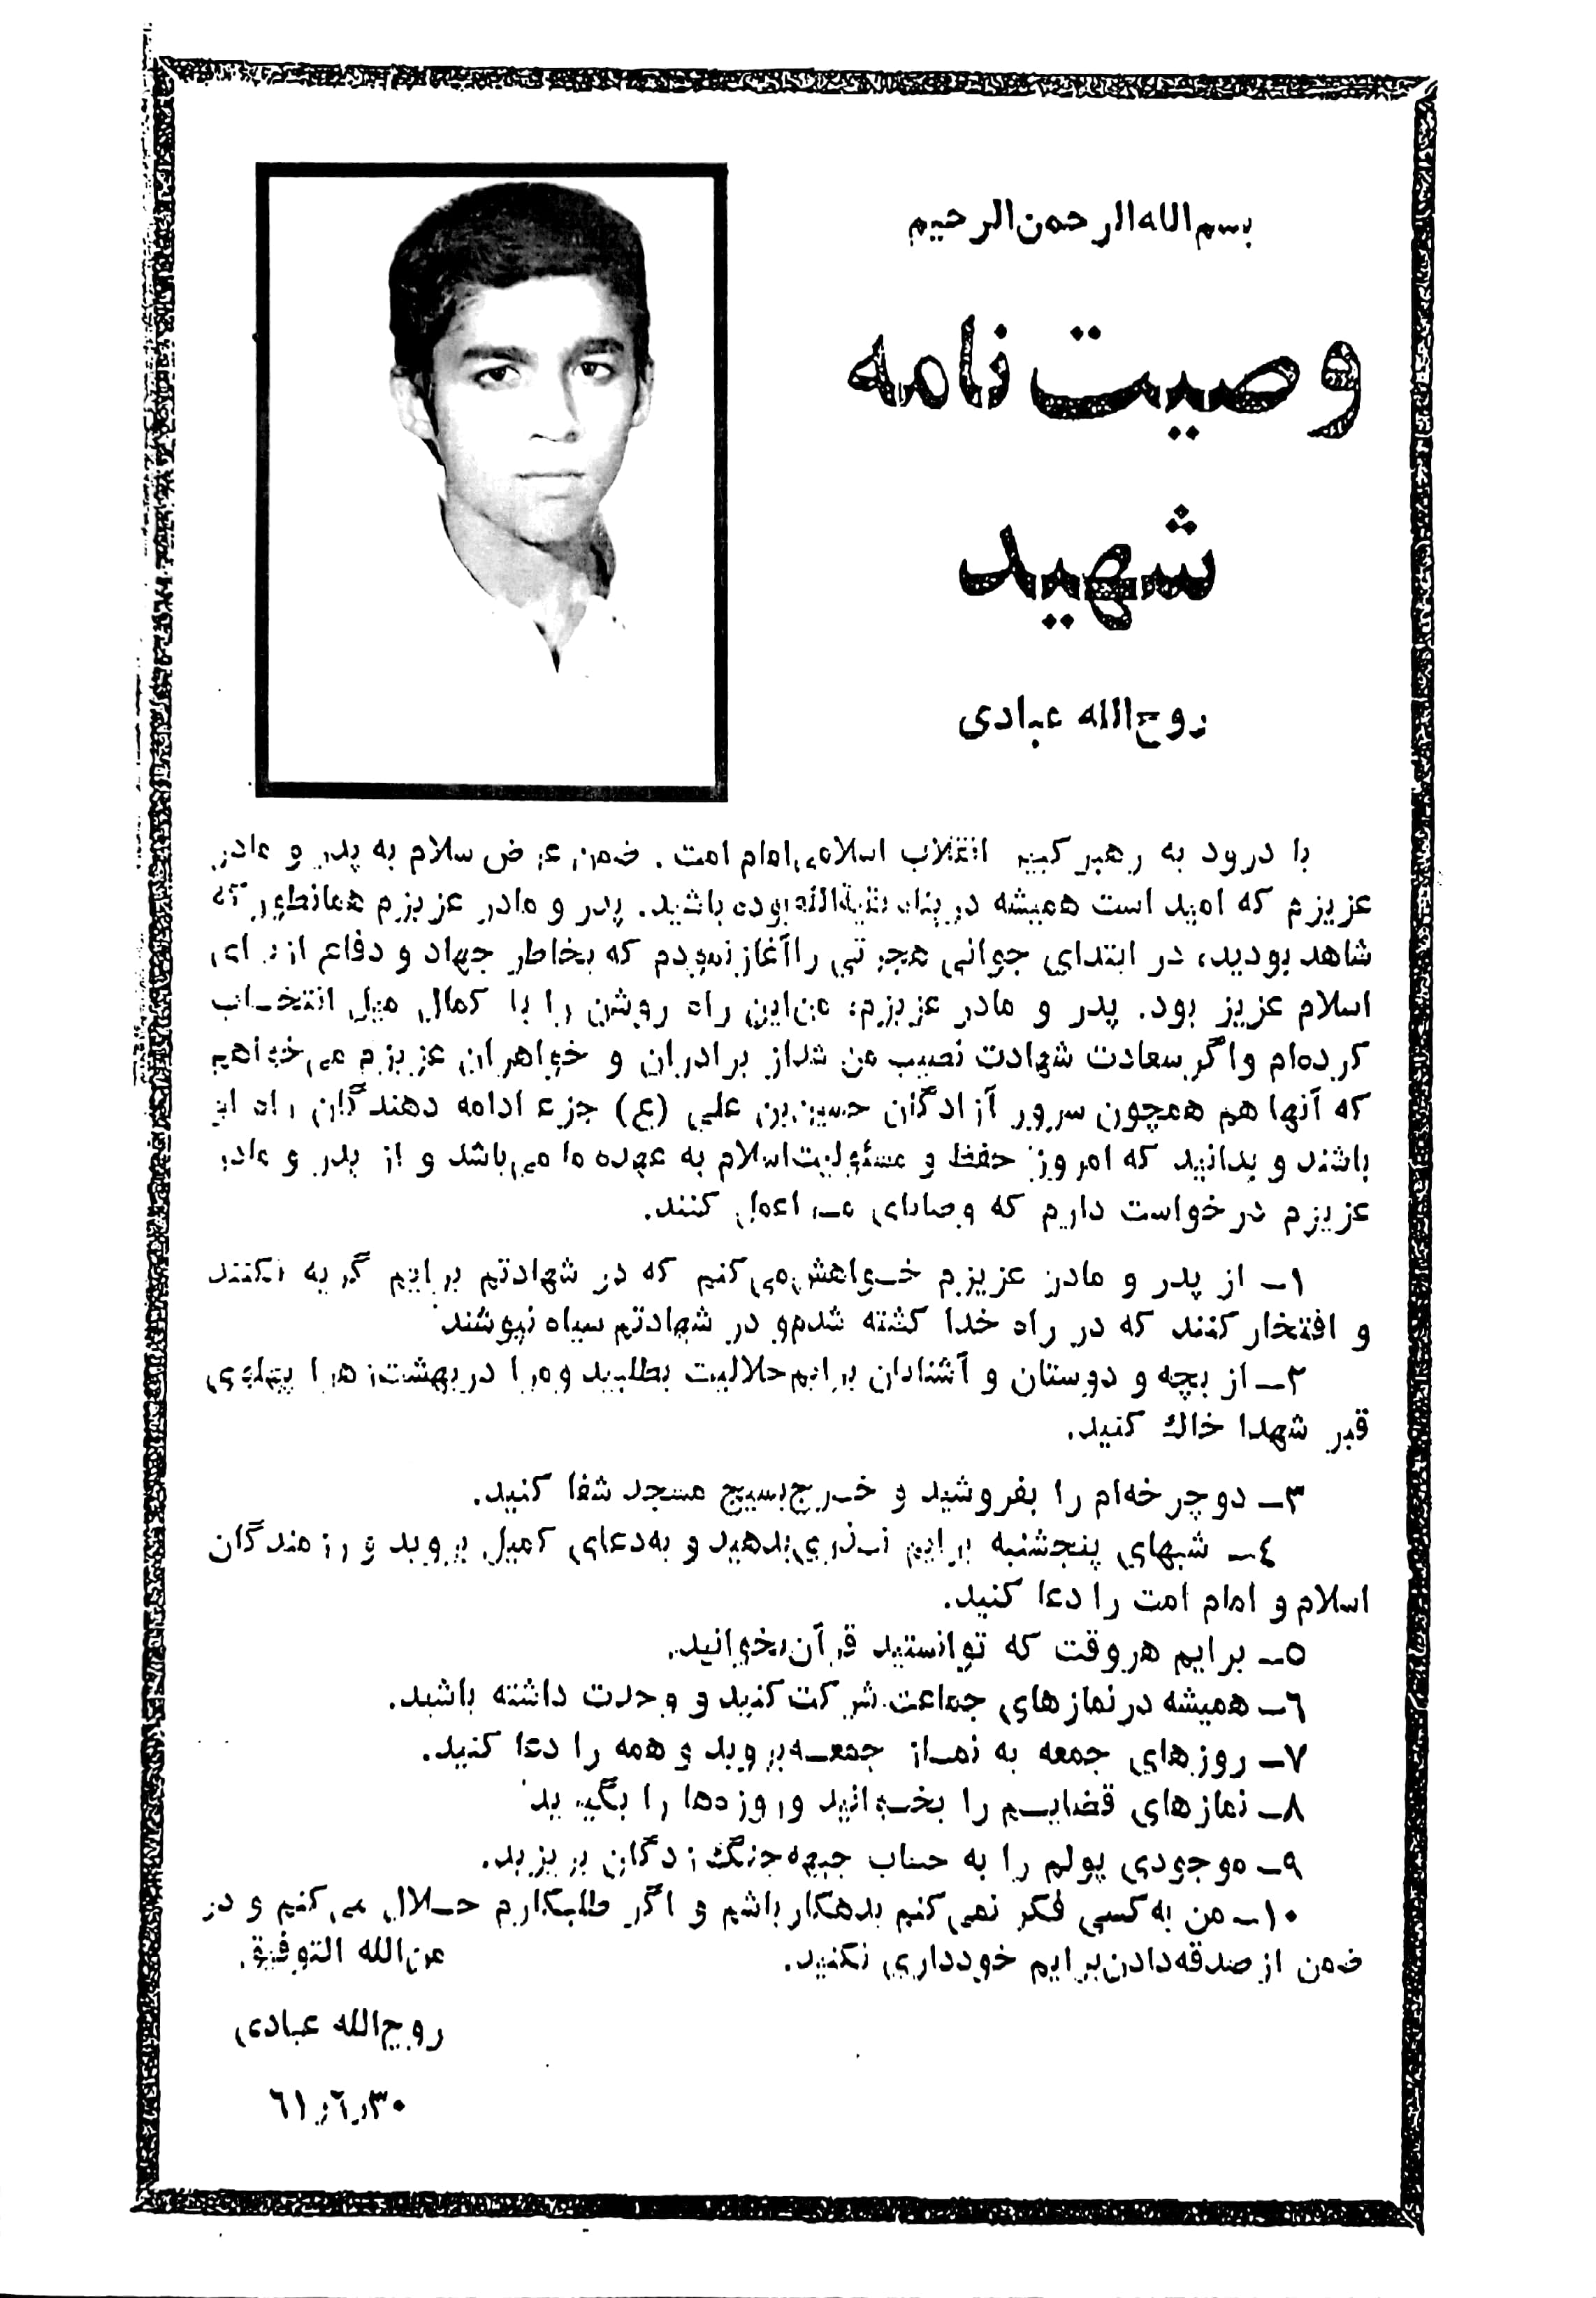 بسم‌الله‌الرحمن‌الرحیم
وصیت‌نامه
شهید
روح‌الله عبادی
با درود به رهبر کبیر انقلاب اسلامی، امام امت. ضمن عرض سلام به پدر و مادر
عزیزم که امید است همیشه در پناه بقیةالله بوده باشید. پدر و مادر عزیزم همانطور که
شاهد بودید، در ابتدای جوانی هجرتی را آغاز نمودم که بخاطر جهاد و دفاع از برای
اسلام عزیز بود. پدر و مادر عزیزم؛ من این راه روشن را با کمال میل انتخاب
کرده‌ام و اگر سعادت شهادت نصیب من شد از برادران و خواهران عزیزم می‌خواهم
که آنها هم همچون سرور آزادگان حسین‌بن علی (ع) جزء ادامه دهندگان راه او
باشند و بدانید که امروز حفظ و مسئولیت اسلام به عهده ما می‌باشد و از پدر و مادر
عزیزم درخواست دارم که وصایای مرا عمل کنند.
۱- از پدر و مادر عزیزم خواهش می‌کنم که در شهادتم برایم گریه نکنند
و افتخار کنند که در راه خدا کشته شدم و در شهادتم سیاه نپوشند.
۲- از بچه و دوستان و آشنایان برایم حلالیت بطلبید و مرا در بهشت زهرا پهلوی
قبر شهدا خاك کنید.
۳- دوچرخه‌ام را بفروشید و خرج بسیج مسجد شفا کنید.
٤- شبهای پنجشنبه برایم نذری بدهید و به دعای کمیل بروید و رزمندگان
اسلام و امام امت را دعا کنید.
٥- برایم هر وقت که توانستید قرآن بخوانید.
٦- همیشه در نمازهای جماعت شرکت کنید و وحدت داشته باشید.
۷- روزهای جمعه به نماز جمعه بروید و همه را دعا کنید.
۸- نمازهای قضایم را بخوانید و روزه‌ها را بگیرید.
۹- موجودی پولم را به حساب جبهه جنگ زدگان بریزید.
۱۰- من به کسی فکر نمی‌کنم بدهکار باشم و اگر طلبکارم حلال می‌کنم و در
ضمن از صدقه دادن برایم خودداری نکنید.
من‌الله التوفیق.
روح‌الله عبادی
۳۰ر٦ر٦۱